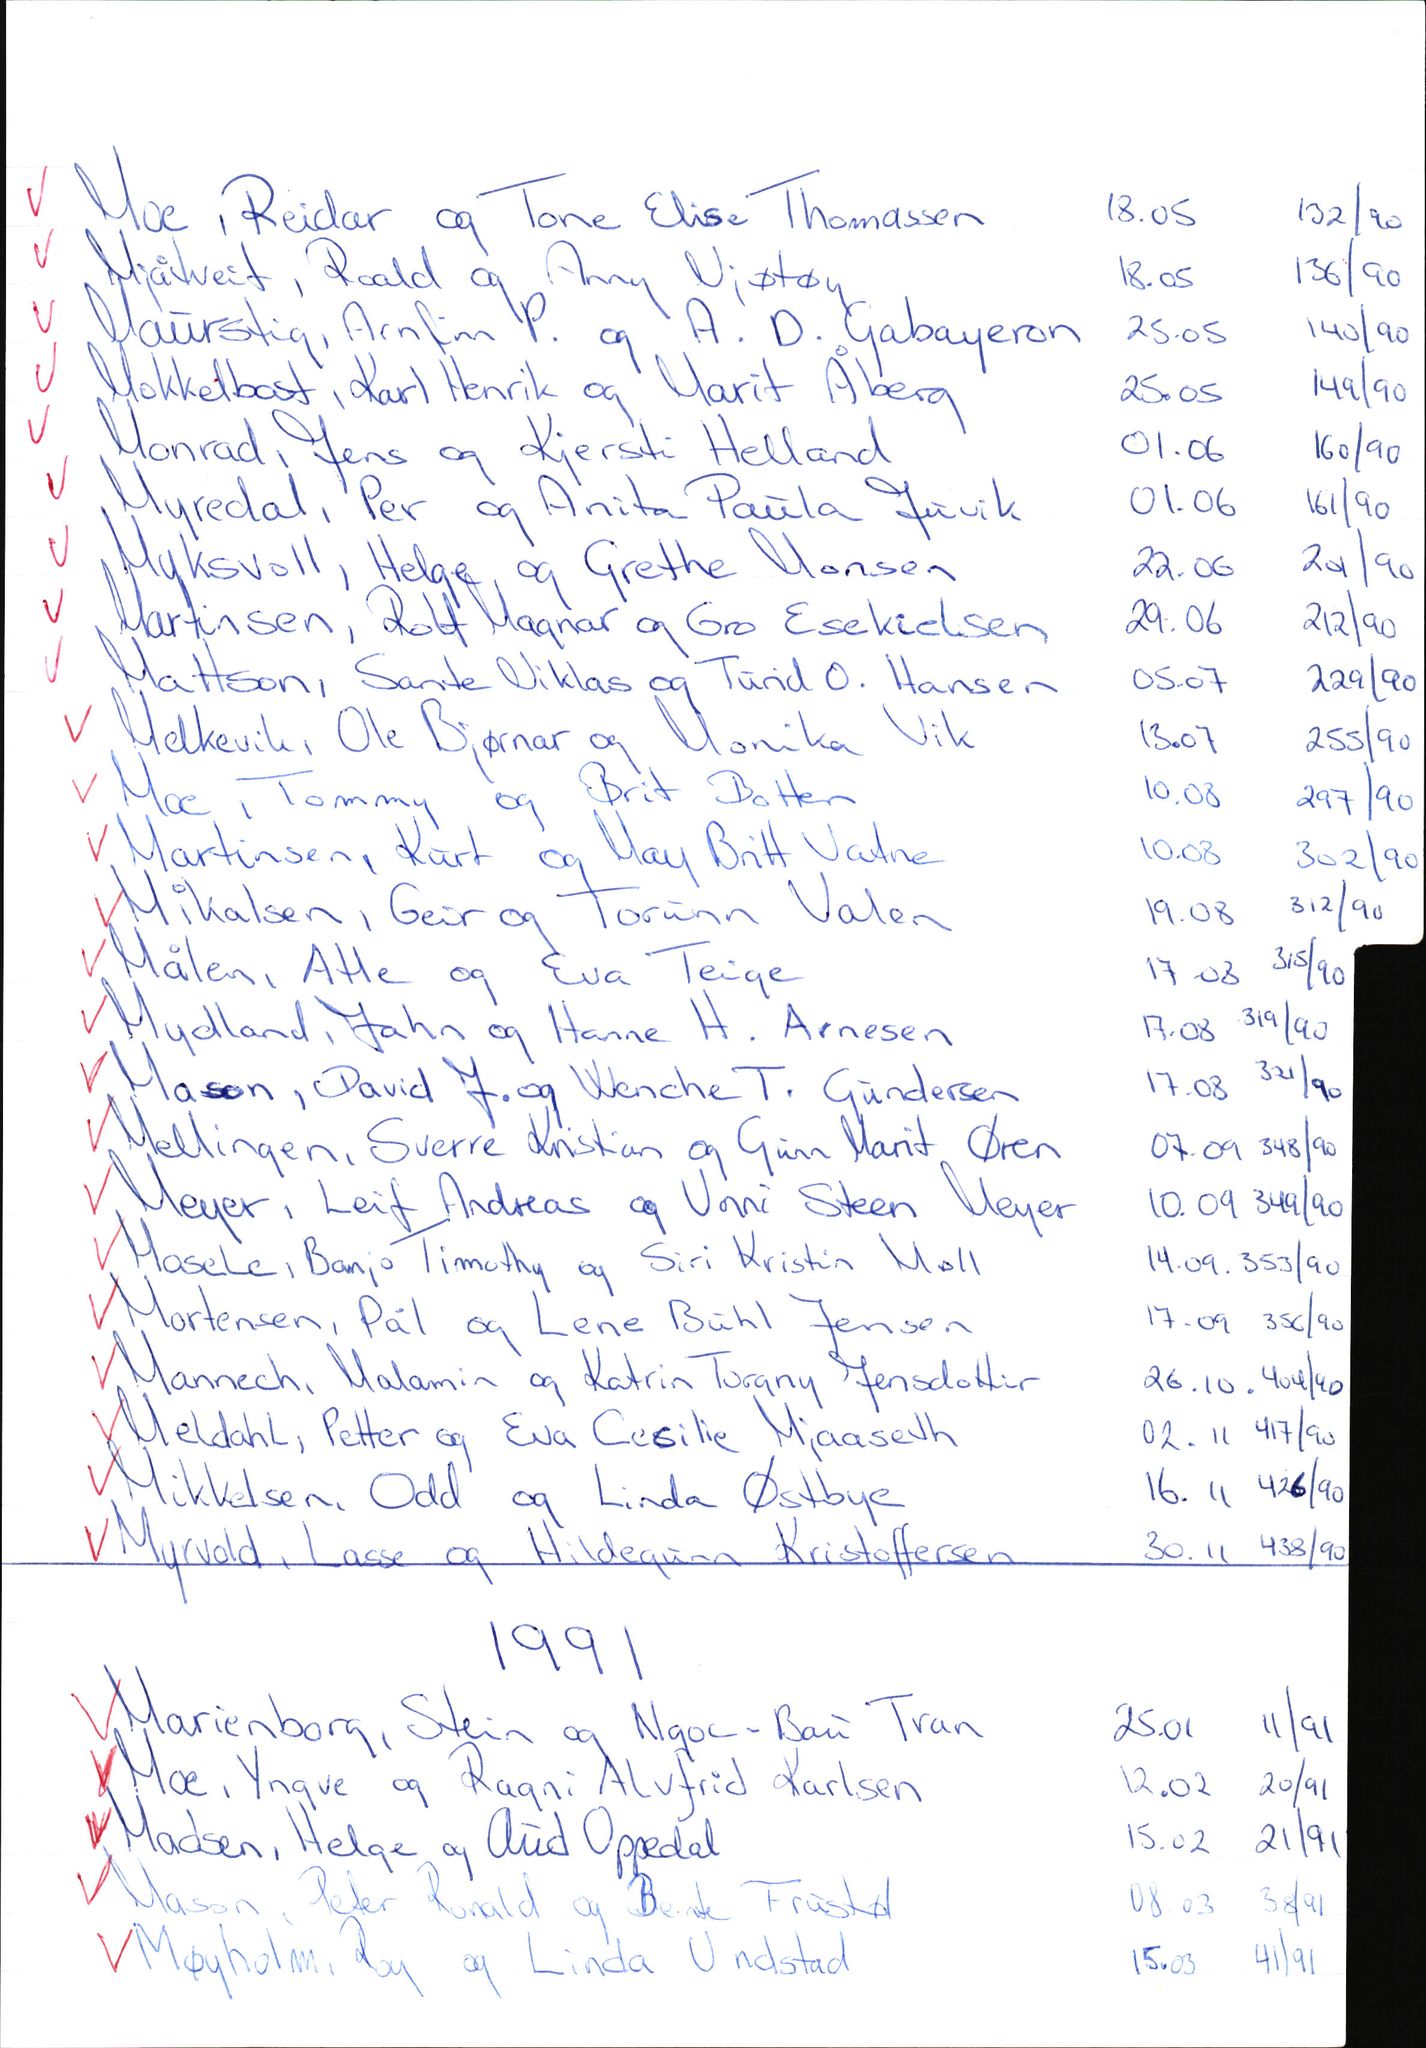 Moe, Reidar og Tone Elise Thomassen 18.05 132/90
Mjåtveit, Roald og Anny Njøtøy 18.05 136/90
Maurstig, Arnfinn P. og A. D. Gabayeron 25.05 140/90
Mokkelbost, Karl Henrik og Marit Åberg 25.05 149/90
Monrad, Jens og Kjersti Helland 01.06 160/90
Myredal, Per og Anita Paula Juvik 01.06 161/90
Myksvoll, Helge og Grethe Monsen 22.06 201/90
Martinsen, Rolf Magnar og Gro Esekielsen 29.06 212/90
Mattson, Sante Niklas og Turid O. Hansen 05.07 229/90
Melkevik, Ole Bjørnar og Monika Vik 13.07 255/90
Moe, Tommy og Brit Botten 10.08 297/90
Martinsen, Kurt og May Britt Vatne 10.08 302/90
Mikalsen, Geir og Torunn Valen 19.08 312/90
Målen, Atle og Eva Teige 17.08 315/90
Mydland, Jahn og Hanne H. Arnesen 17.08 319/90
Mason, David J. og Wenche T. Gundersen 17.08 321/90
Mellingen, Sverre Kristian og Gunn Marit Øren 07.09 348/90
Meyer, Leif Andreas og Unni Steen Meyer 10.09 349/90
Masele, Banjo Timothy og Siri Kristin Moll 14.09. 353/90
Mortensen, Pål og Lene Buhl Jensen 17.09 356/90
Mannech, Malamin og Katrin Torgny Jensdottir 26.10. 404/90
Meldahl, Petter og Eva Cecilie Mjaaseth 02.11 417/90
Mikkelsen, Odd og Linda Østbye 16.11 426/90
Myrvold, Lasse og Hildegunn Kristoffersen 30.11 438/90
1991
Marienborg, Stein og Ngoc-Bau Tran 25.01 11/91
Moe, Yngve og Ragni Alvfrid Karlsen 12.02 20/91
Madsen, Helge og Aud Oppedal 15.02 21/91
Mason, Peter Ronald og Bente Frustøl 08.03 38/91
Møyholm, Roy og Linda Undstad 15.03 41/91